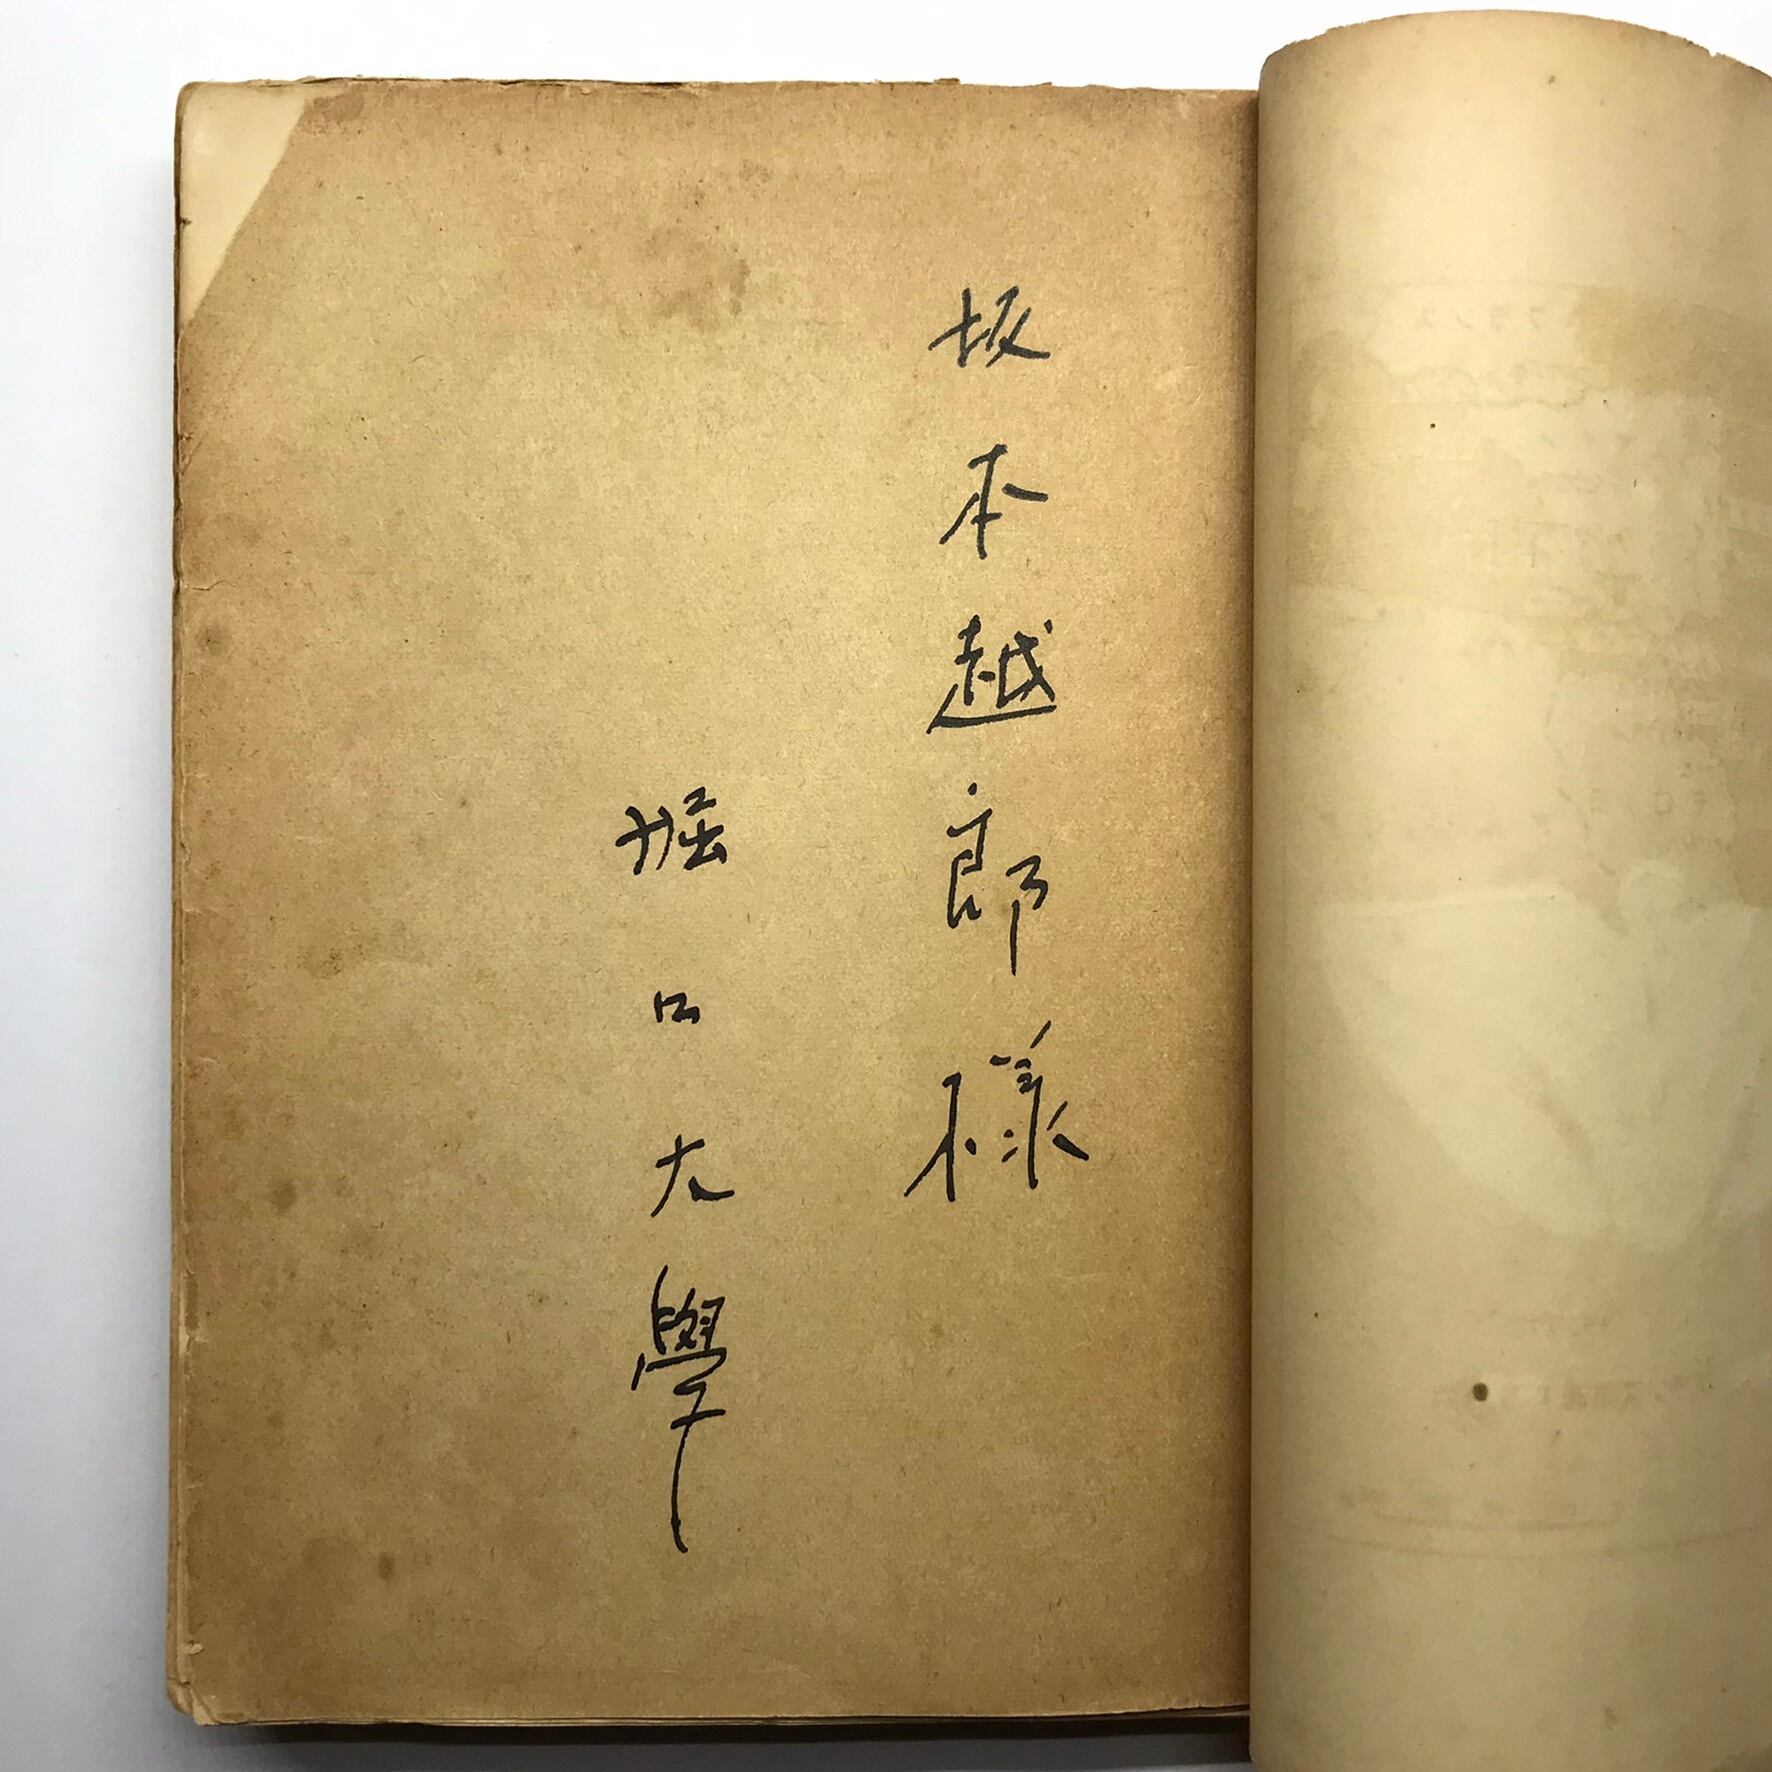 坂本越郎様
堀口大學